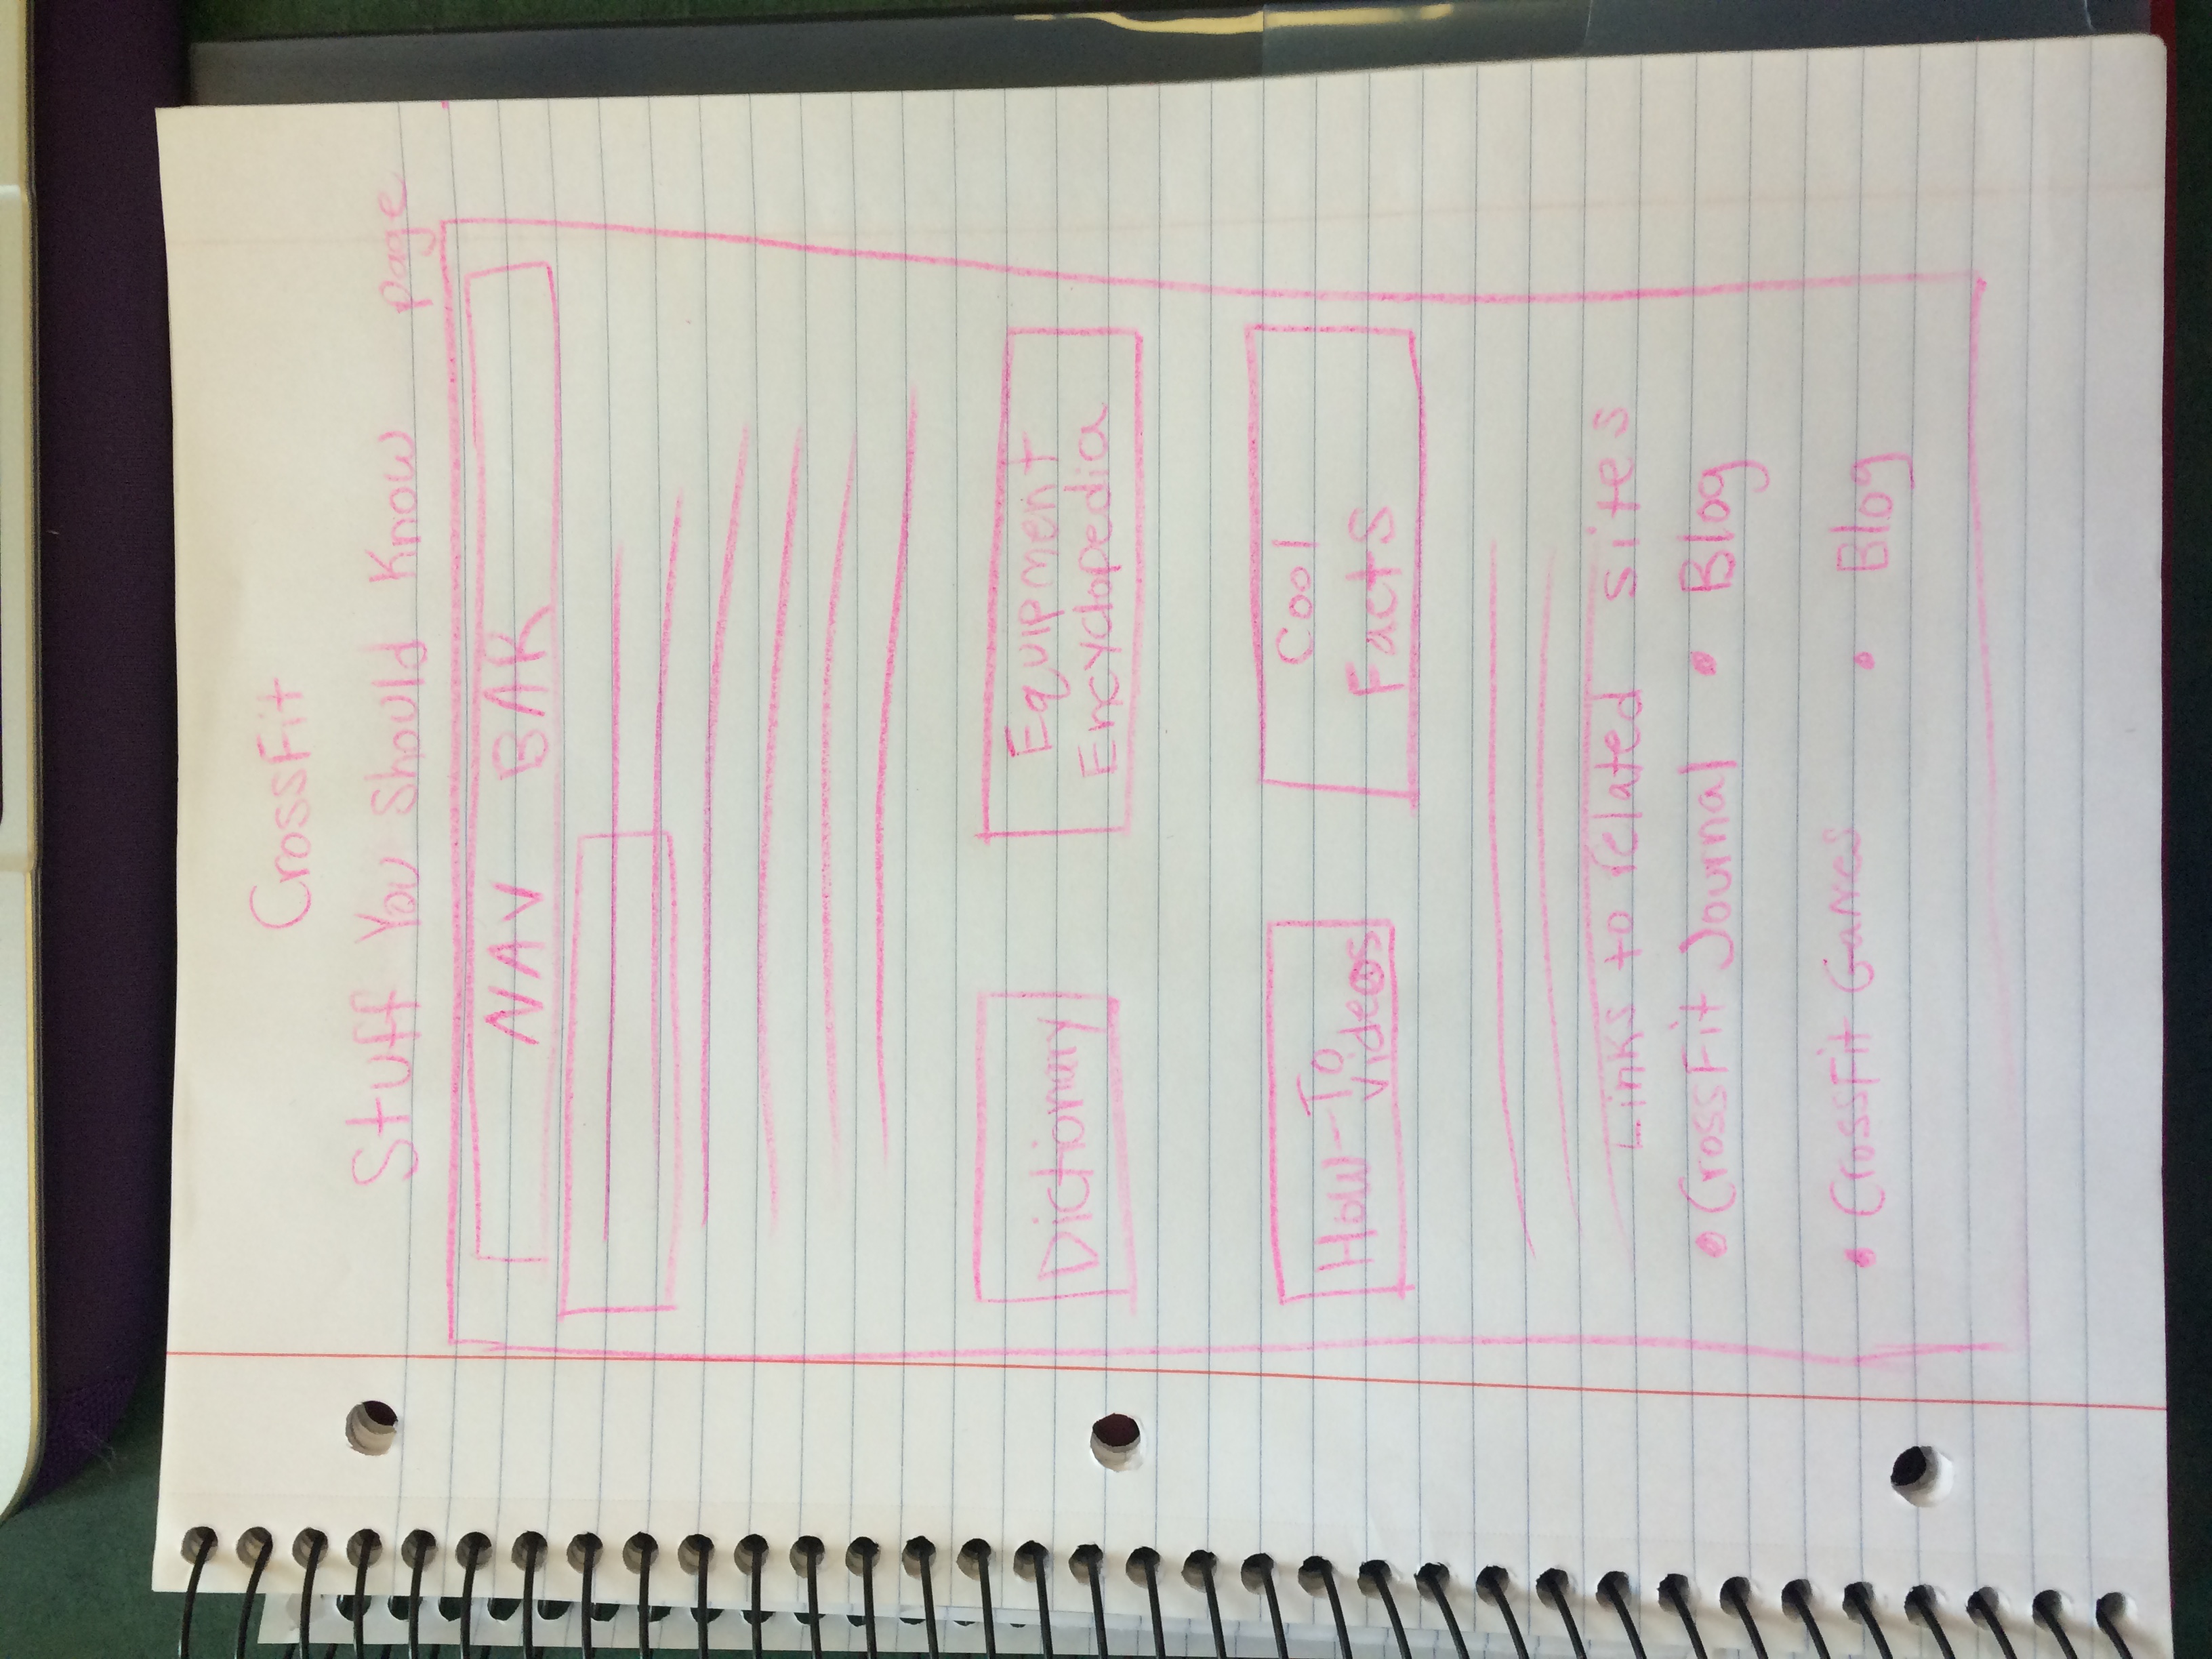 CrossFit
Stuff You Should Know page
NAV BAR
Dictionary
Equipment
Encyclopedia
How-To
Videos
Cool
Facts
Links to related sites
• CrossFit Journal • Blog
• CrossFit Games • Blog